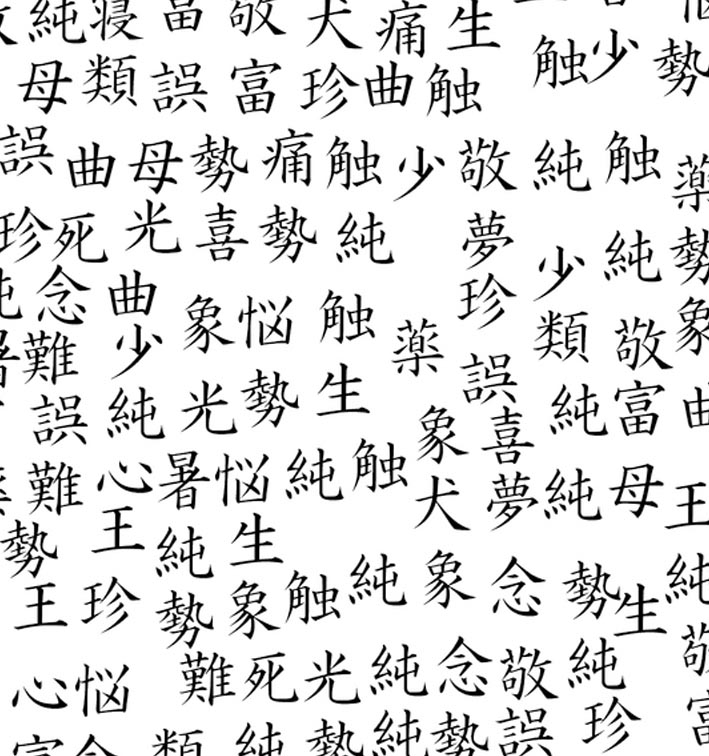 純寝富敬犬痛生
母類誤富珍曲触触少勢
誤曲母勢痛触少敬純触薬
珍死光喜勢純夢少純勢
念曲象悩触珍類敬象
難少薬誤
誤純光勢生象喜純富曲
難心暑悩純触犬夢純母王
勢王純生
王珍勢象触純象念勢生純
心悩難死光純念敬純敬
類純勢純勢誤珍富